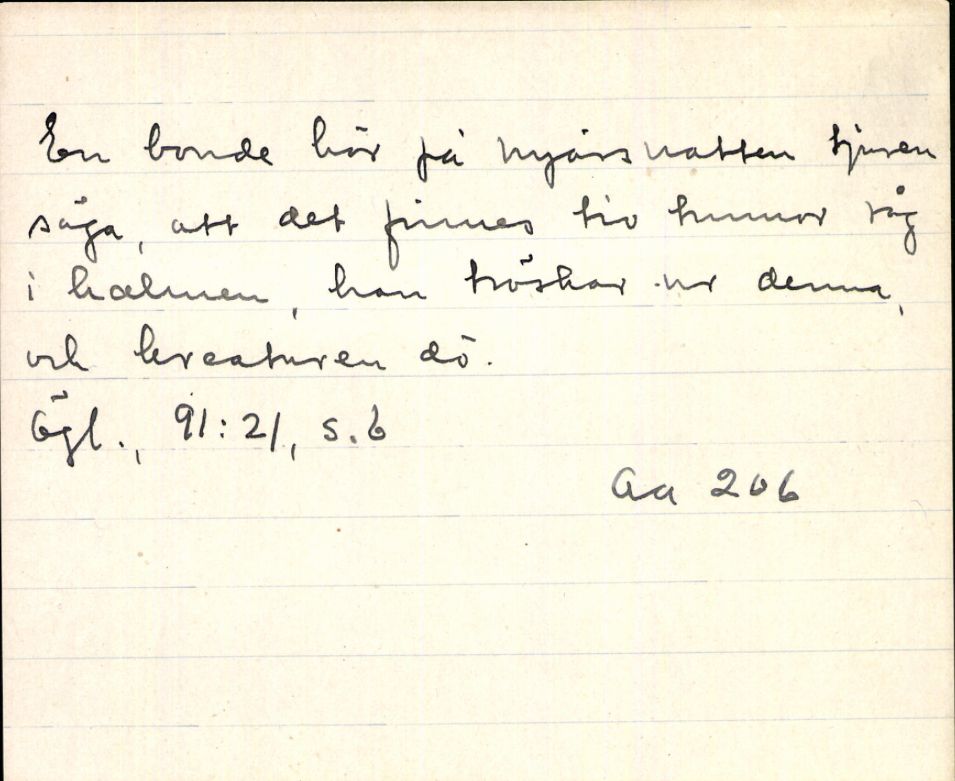 En bonde hör på nyårsnatten tjuren
säga, att det finnes tio tunnor råg
i halmen, han tröskar ur denna,
och kreaturen dö.
Ögl., 91:21, s. 6
Aa 206